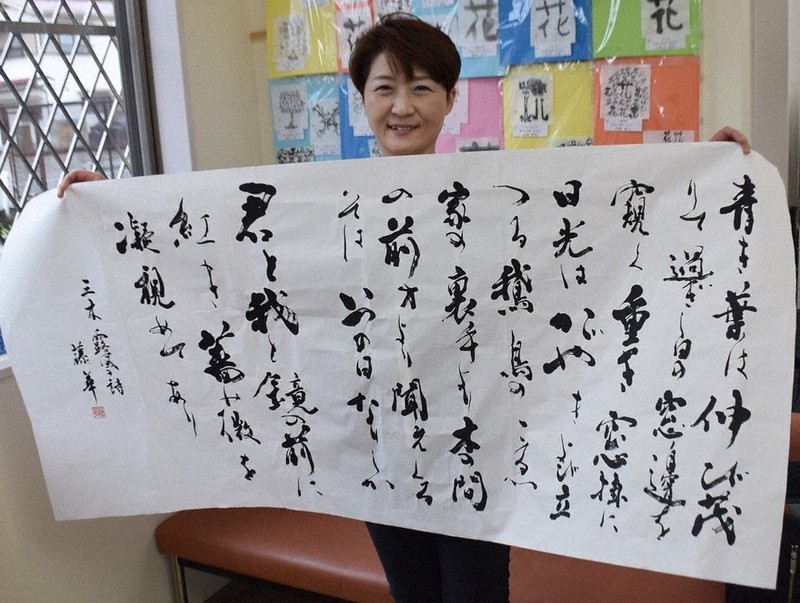 青き葉は伸び茂
りて過ぎし日の窓邊を
窺く重き窓掛に
日光はかゞやきとび立
つる鵞鳥のこゑ
家の裏手より木の間
の前方より聞えくる
そはいつの日なりしか
君と我と鏡の前に
紅き薔薇を
凝視めてあり
三木露風詩
藤華
花
花
花